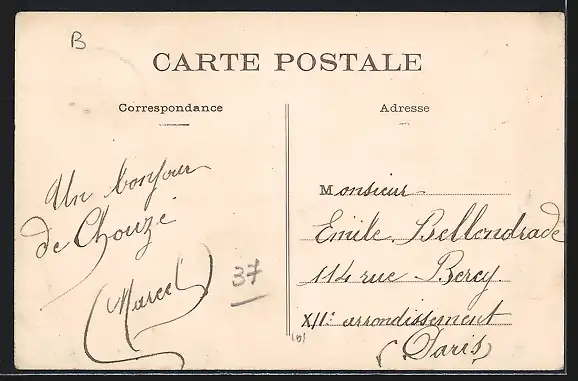 B
CARTE POSTALE
Correspondance
Un bonjour
de Chouzé
Marcel
37
Adresse
Monsieur
Emile Bellendrade
114 rue Bercy.
XII: arrondissement
(Paris)